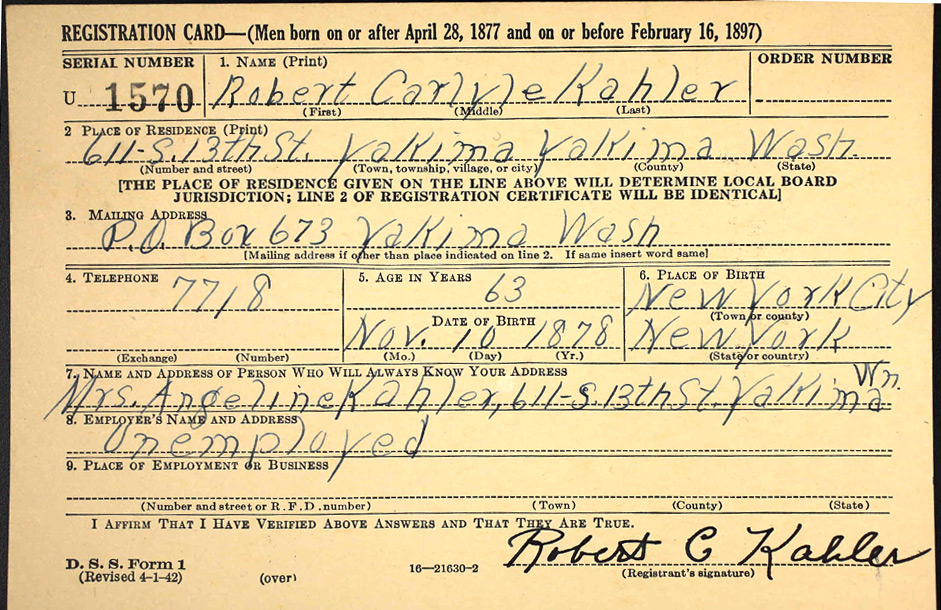 REGISTRATION CARD—(Men born on or after April 28, 1877 and on or before February 16, 1897)
SERIAL NUMBER 1. NAME (Print) ORDER NUMBER
U 1570 Robert Carlyle Kahler
(First) (Middle) (Last)
2 PLACE OF RESIDENCE (Print)
611-S. 13th St. Yakima Yakima Wash.
(Number and street) (Town, township, village, or city) (County) (State)
[THE PLACE OF RESIDENCE GIVEN ON THE LINE ABOVE WILL DETERMINE LOCAL BOARD
JURISDICTION; LINE 2 OF REGISTRATION CERTIFICATE WILL BE IDENTICAL]
3. MAILING ADDRESS
P.O. Box 673 Yakima Wash
[Mailing address if other than place indicated on line 2. If same insert word same]
4. TELEPHONE 5. AGE IN YEARS 6. PLACE OF BIRTH
7718 63 New York City
(Town or county)
DATE OF BIRTH
Nov. 10 1878 New York
(Exchange) (Number) (Mo.) (Day) (Yr.) (State or country)
7. NAME AND ADDRESS OF PERSON WHO WILL ALWAYS KNOW YOUR ADDRESS
Mrs. Angeline Kahler, 611-S. 13th St. Yakima Wn.
8. EMPLOYER'S NAME AND ADDRESS
Unemployed
9. PLACE OF EMPLOYMENT OR BUSINESS
(Number and street or R.F.D. number) (Town) (County) (State)
I AFFIRM THAT I HAVE VERIFIED ABOVE ANSWERS AND THAT THEY ARE TRUE.
Robert C Kahler
D. S. S. Form 1
(Revised 4-1-42) (over) 16—21630-2 (Registrant's signature)